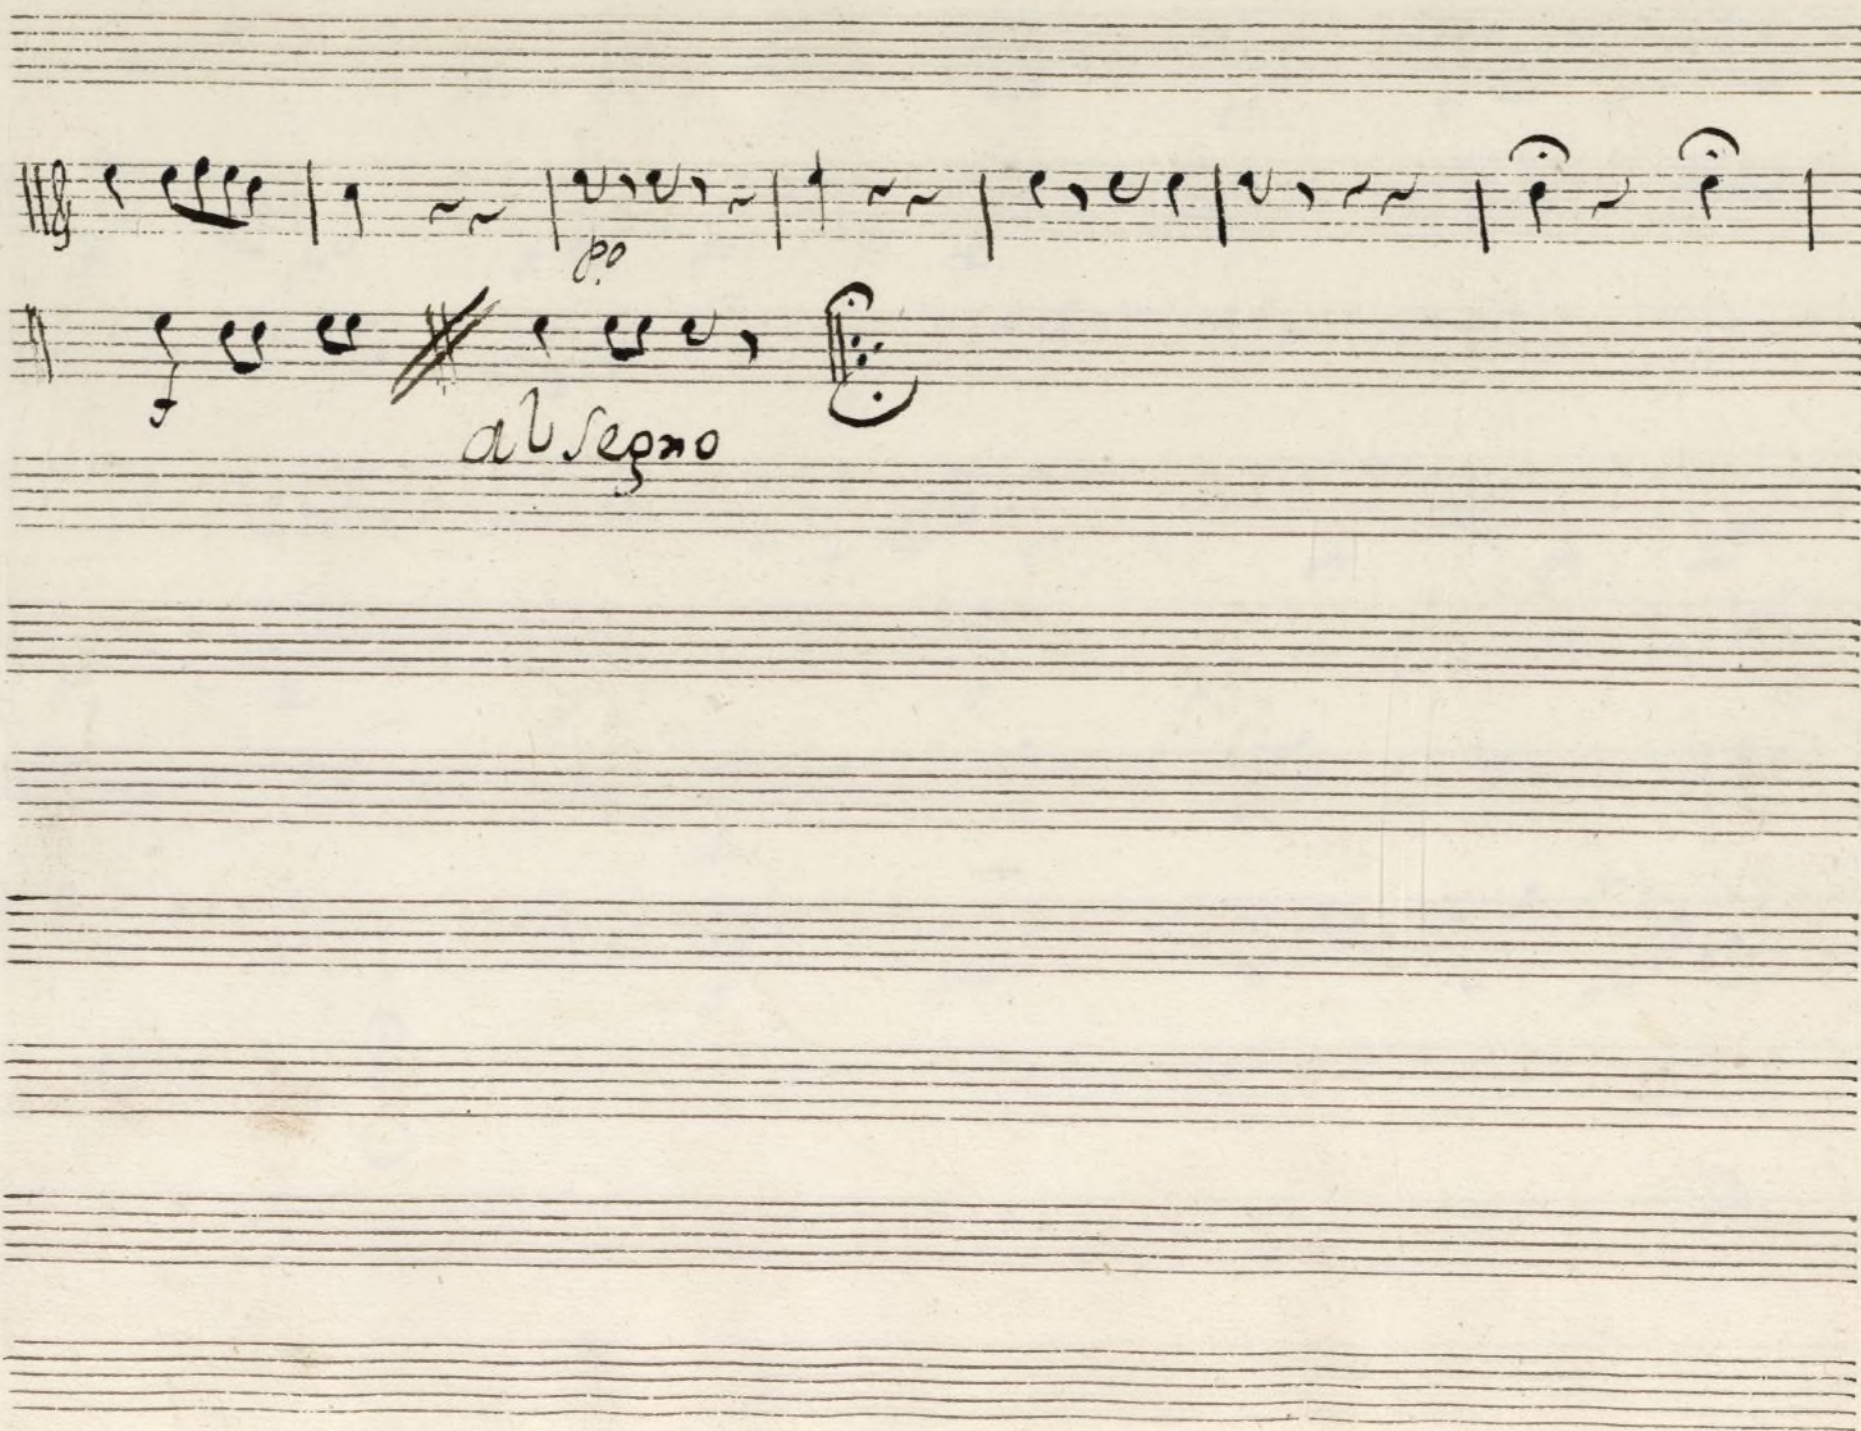 po
f
al Segno